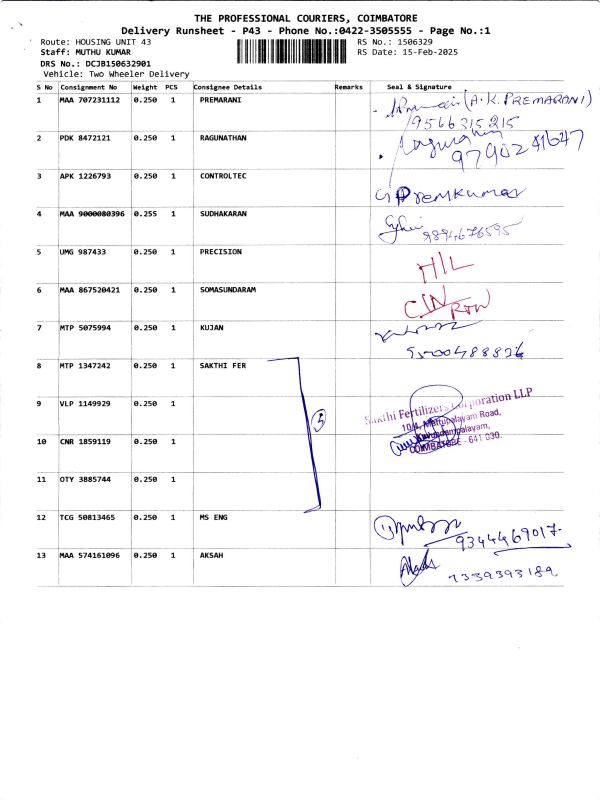 THE PROFESSIONAL COURIERS, COIMBATORE
Delivery Runsheet - P43 - Phone No.:0422-3505555 - Page No.:1
Route: HOUSING UNIT 43 RS No.: 1506329
Staff: MUTHU KUMAR RS Date: 15-Feb-2025
DRS No.: DCJB150632901
Vehicle: Two Wheeler Delivery
S No Consignment No Weight PCS Consignee Details Remarks Seal & Signature
1 MAA 707231112 0.250 1 PREMARANI (A.K.PREMARANI)
9566315215
2 PDK 8472121 0.250 1 RAGUNATHAN Ragunathan
9790241647
3 APK 1226793 0.250 1 CONTROLTEC G Premkumar
4 MAA 9000080396 0.255 1 SUDHAKARAN 9894676595
5 UMG 987433 0.250 1 PRECISION H/L
6 MAA 867520421 0.250 1 SOMASUNDARAM
7 MTP 5075994 0.250 1 KUJAN
9500488836
8 MTP 1347242 0.250 1 SAKTHI FER
9 VLP 1149929 0.250 1 Sakthi Fertilizers Corporation LLP
10/4, Mettupalayam Road,
10 CNR 1859119 0.250 1 COIMBATORE - 641 030.
5
11 OTY 3885744 0.250 1
12 TCG 50813465 0.250 1 MS ENG 9344469017
13 MAA 574161096 0.250 1 AKSAH 7339393189